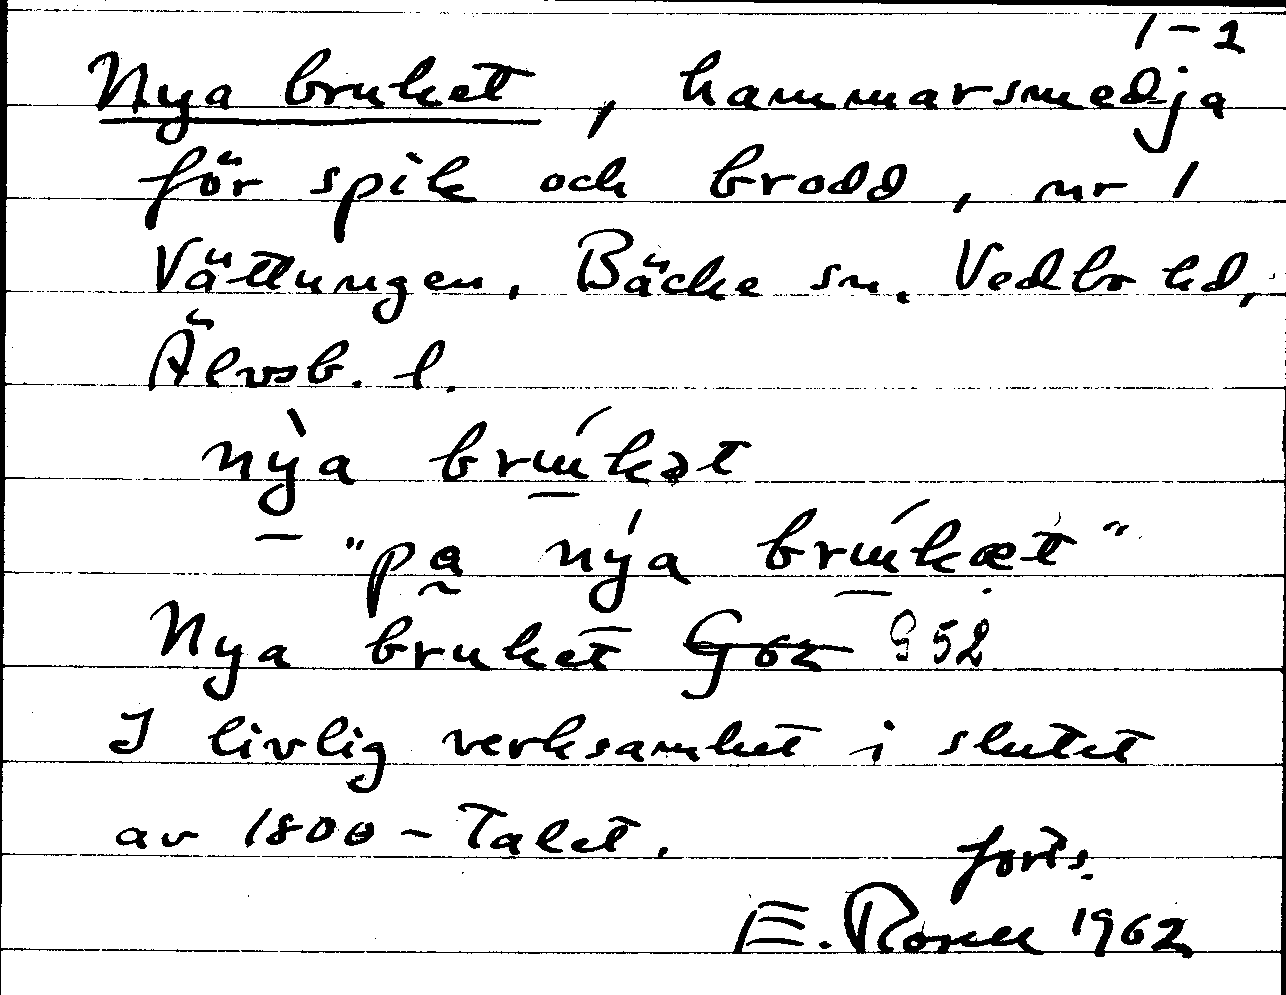 1-2
Nya bruket, hammarsmedja
för spik och brodd, nr 1
Vättungen. Bäcke sn. Vedbo hd,
Älvsb. l.
nỳa brúkət
– "pa nýa brúkæt"
Nya bruket G62 G52
I livlig verksamhet i slutet
av 1800-talet.
forts.
E. 1962